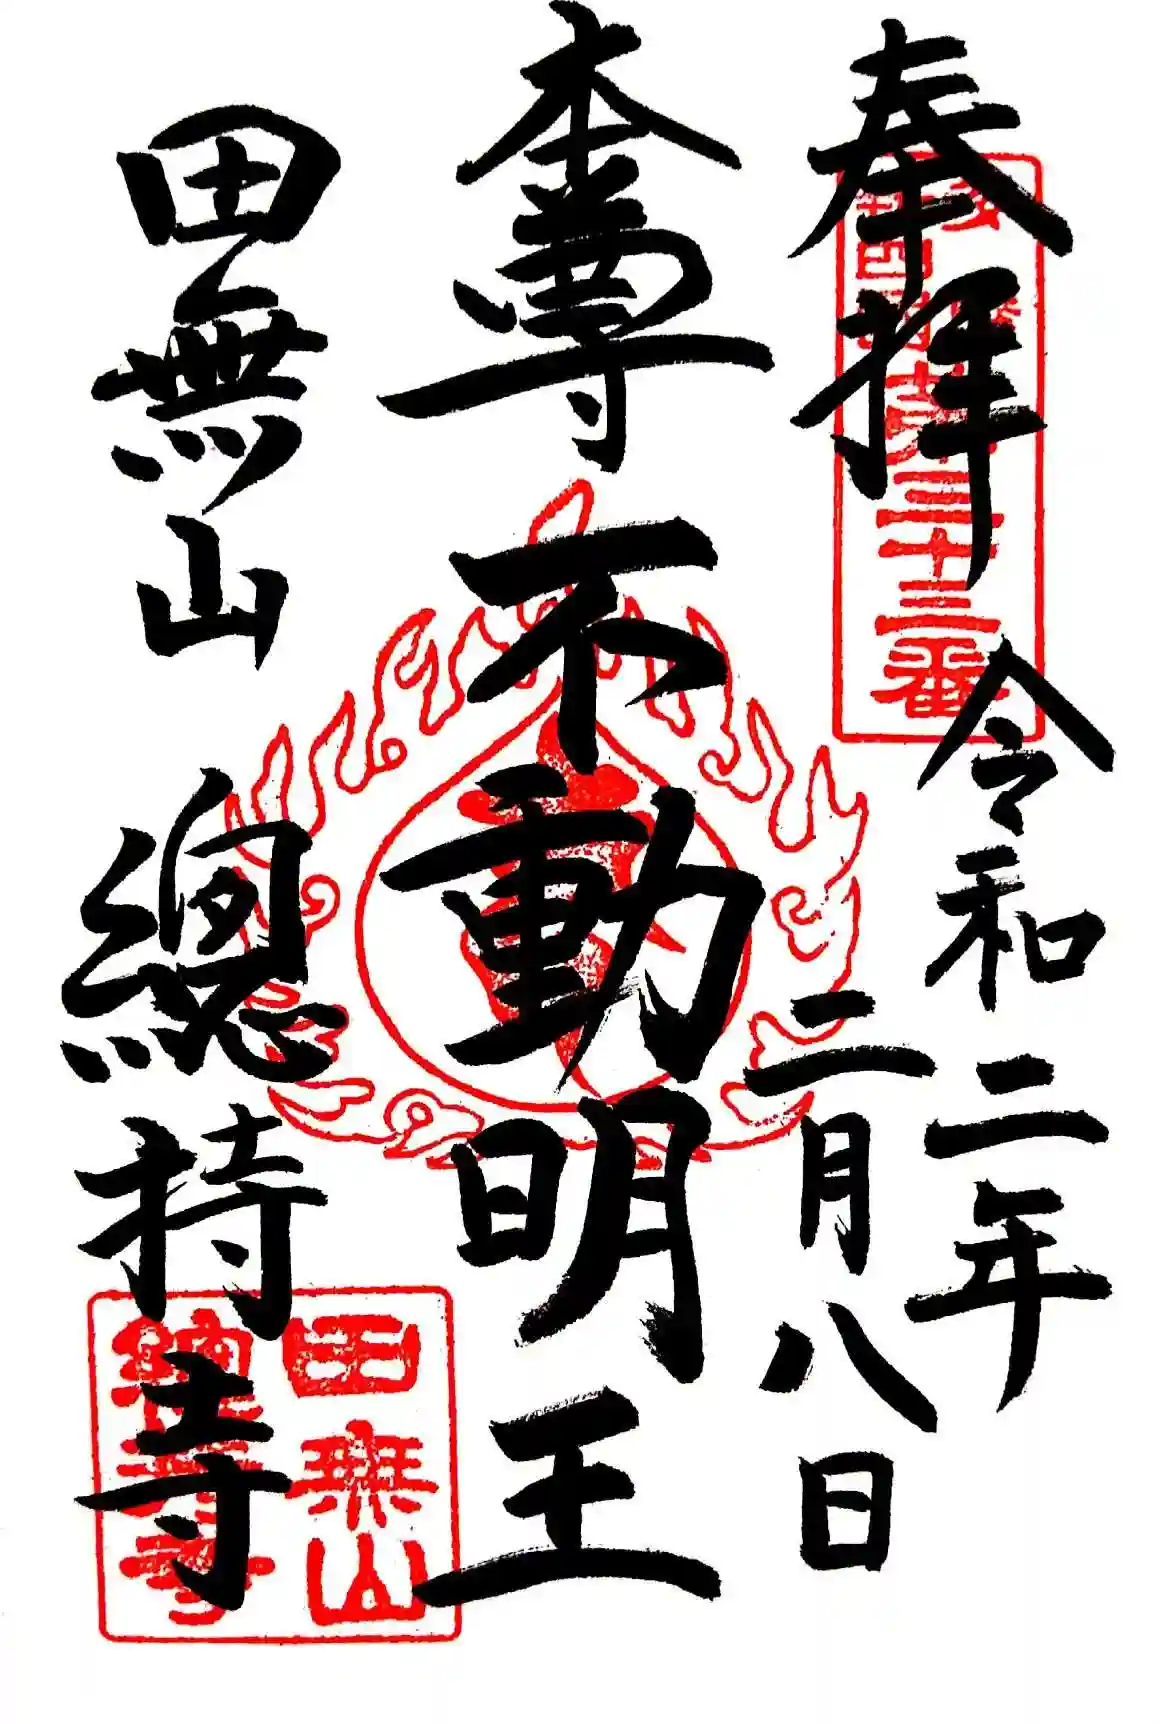 奉拝
令和二年
二月八日
本尊 不動明王
田無山 總持寺
第三十三番
田無山